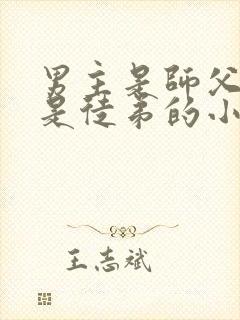 男主是師父
是徒弟的小
王志斌